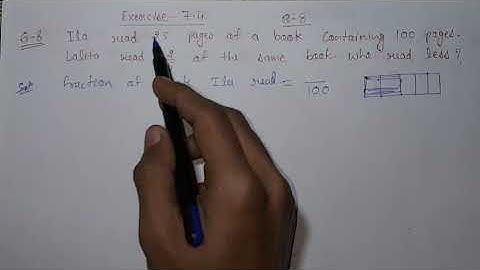 Exercise - 7.4 Q-8
Q-8 Ila read 25 pages of a book containing 100 pages.
Lalita read of the same book who read less?
Sol fraction of Ila read = /100